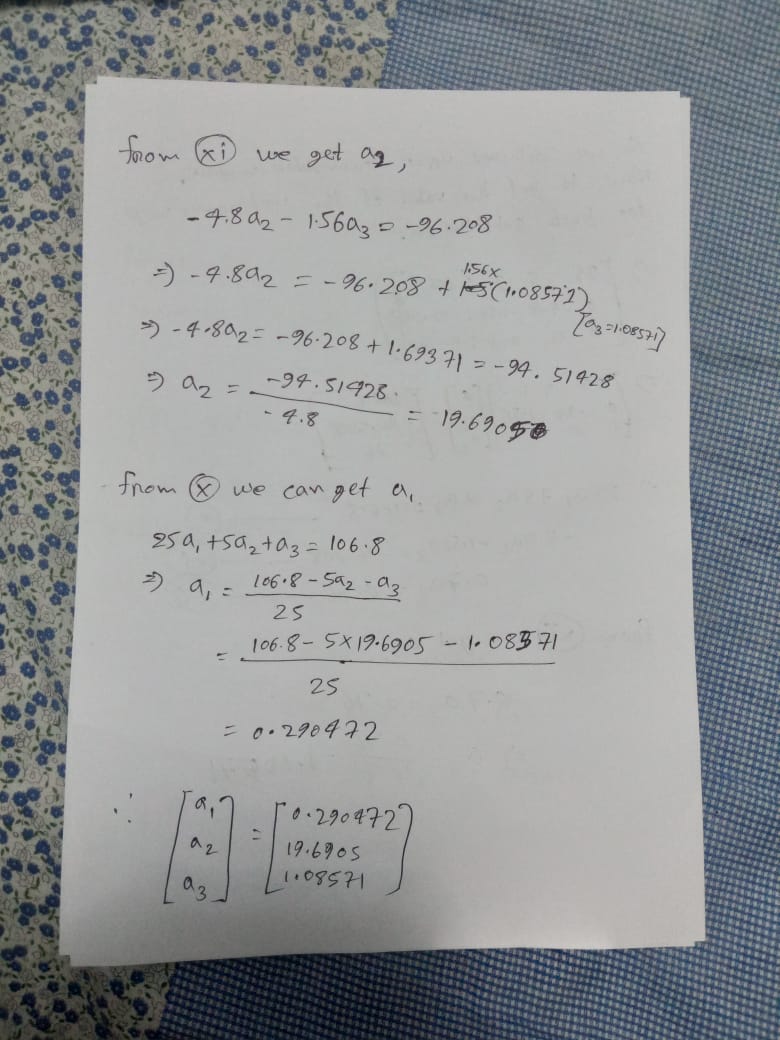 from (xi) we get a₂,
-4.8a₂ - 1.56a₃ = -96.208
⇒ -4.8a₂ = -96.208 + 1.56×(1.08571)
[a₃=1.08571]
⇒ -4.8a₂ = -96.208 + 1.69371 = -94.51428
⇒ a₂ = -94.51428 / -4.8 = 19.6905
from (x) we can get a₁
25a₁+5a₂+a₃ = 106.8
⇒ a₁ = 106.8-5a₂-a₃ / 25
= 106.8-5×19.6905 - 1.08571 / 25
= 0.290472
∴ [a₁ a₂ a₃] = [0.290472 19.6905 1.08571]